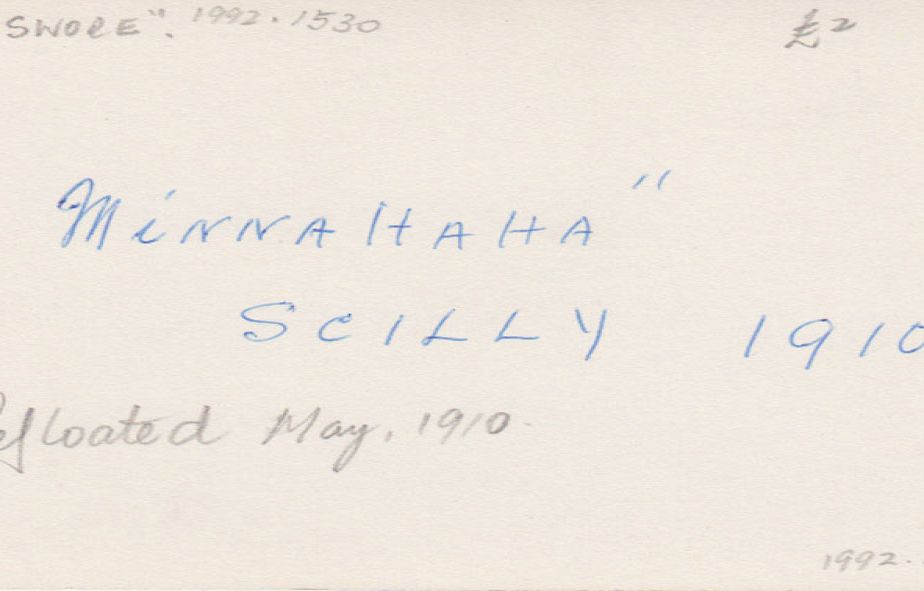 SWORE". 1992.1530 £2
MiNNAHAHA"
SCILLY 1910
efloated May, 1910.
1992.